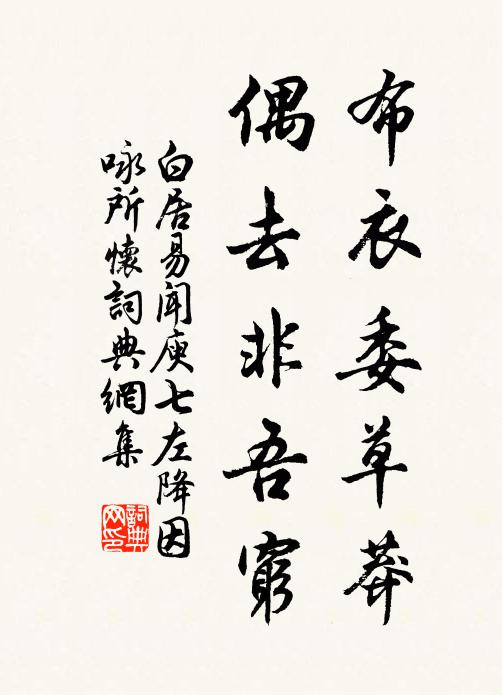 布衣委草莽
偶去非吾窮
白居易聞庾七左降因
咏所懷詞典網集
詞典
网印